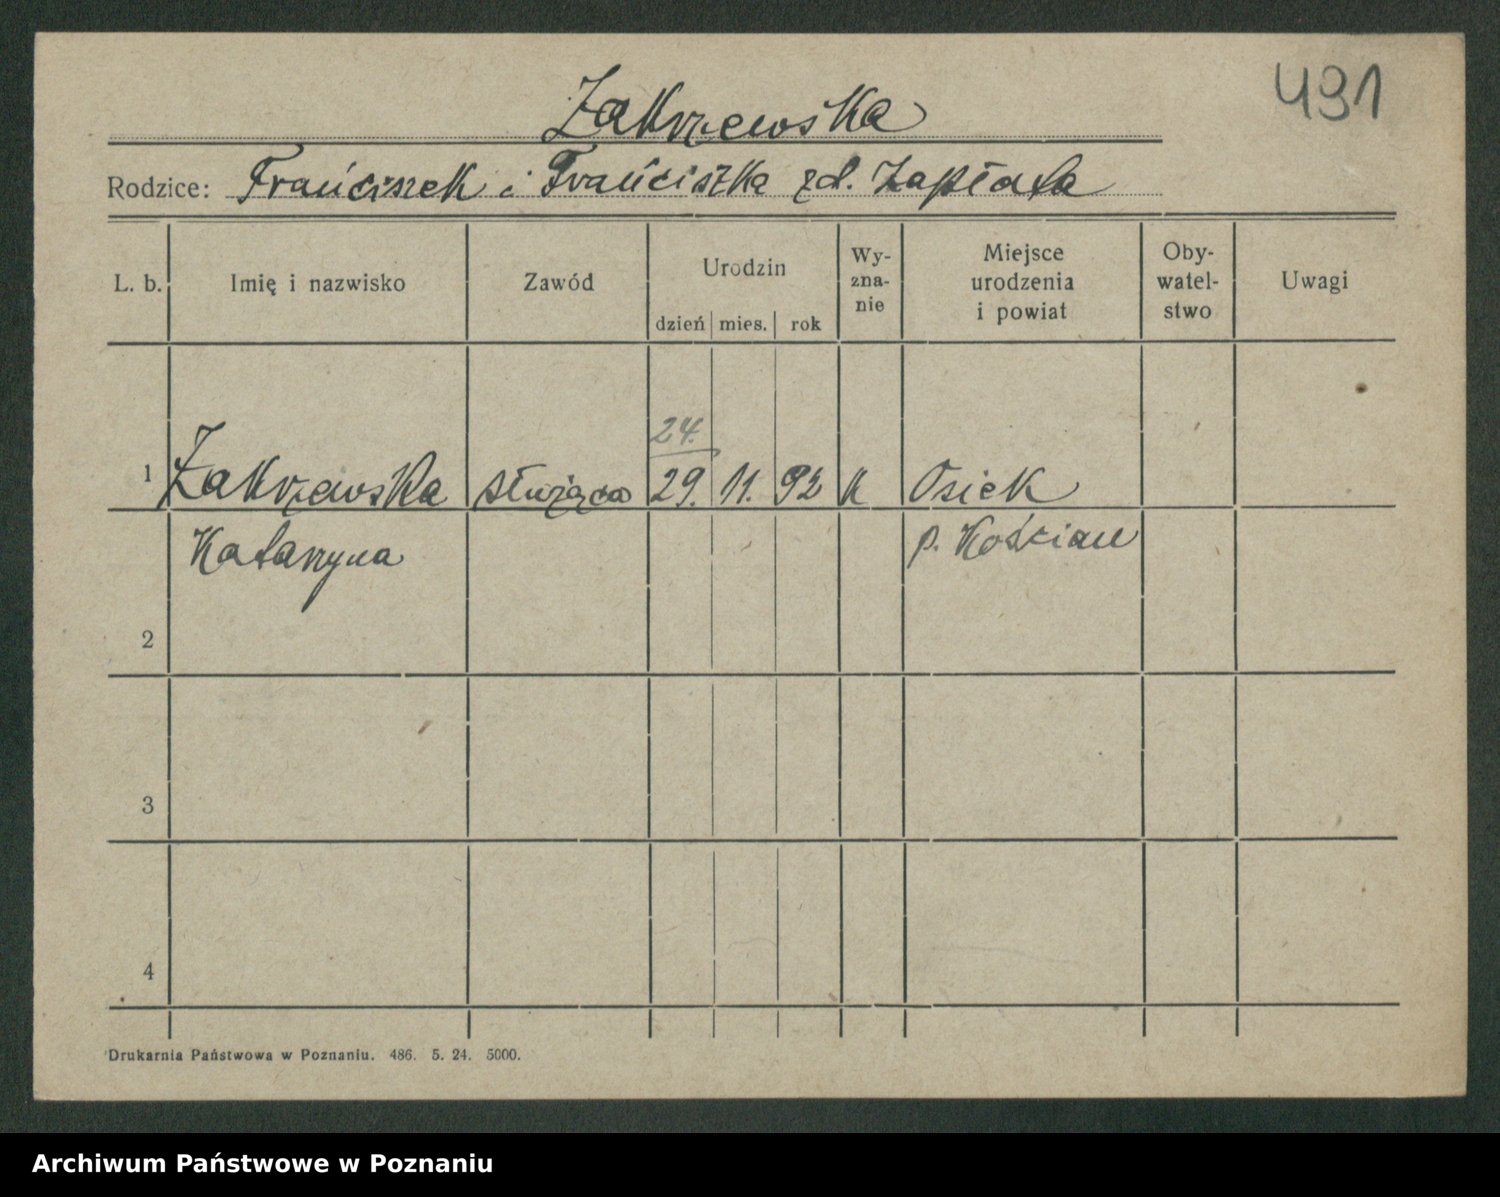 491
Zakrzewska
Rodzice: Franciszek i Franciszka zd. Zapłata
L. b. Imię i nazwisko Zawód Urodzin dzień mies. rok Wy-znanie Miejsce urodzenia i powiat Oby-watel-stwo Uwagi
24.
1 Zakrzewska służąca 29. 11. 92 k Osiek
Katarzyna p. Kościan
2
3
4
Drukarnia Państwowa w Poznaniu. 486. 5. 24. 5000.
Archiwum Państwowe w Poznaniu